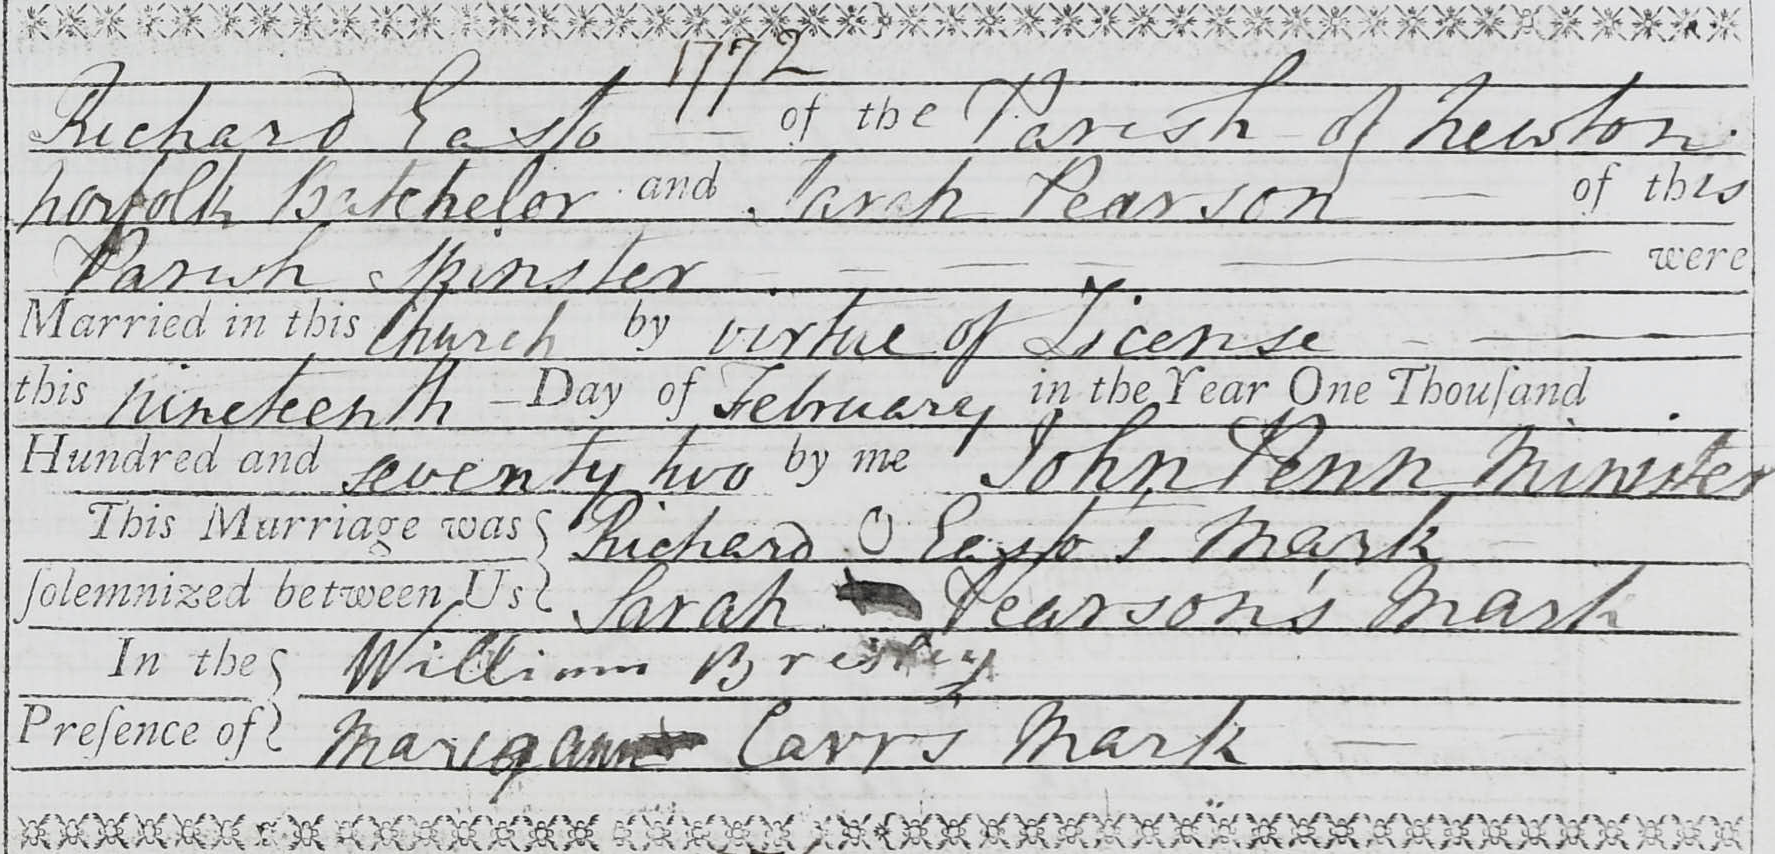 1772
Richard Easto — of the Parish of Newton
Norfolk Batchelor and Sarah Pearson — of this
Parish Spinster — — — — were
Married in this Church by virtue of License — —
this nineteenth – Day of February in the Year One Thouſand
Hundred and seventy two by me John Penn Minister
This Marriage was Richard O Easto's Mark —
ſolemnized between Us Sarah Pearson's Mark
In the William
Preſence of Carrs Mark —